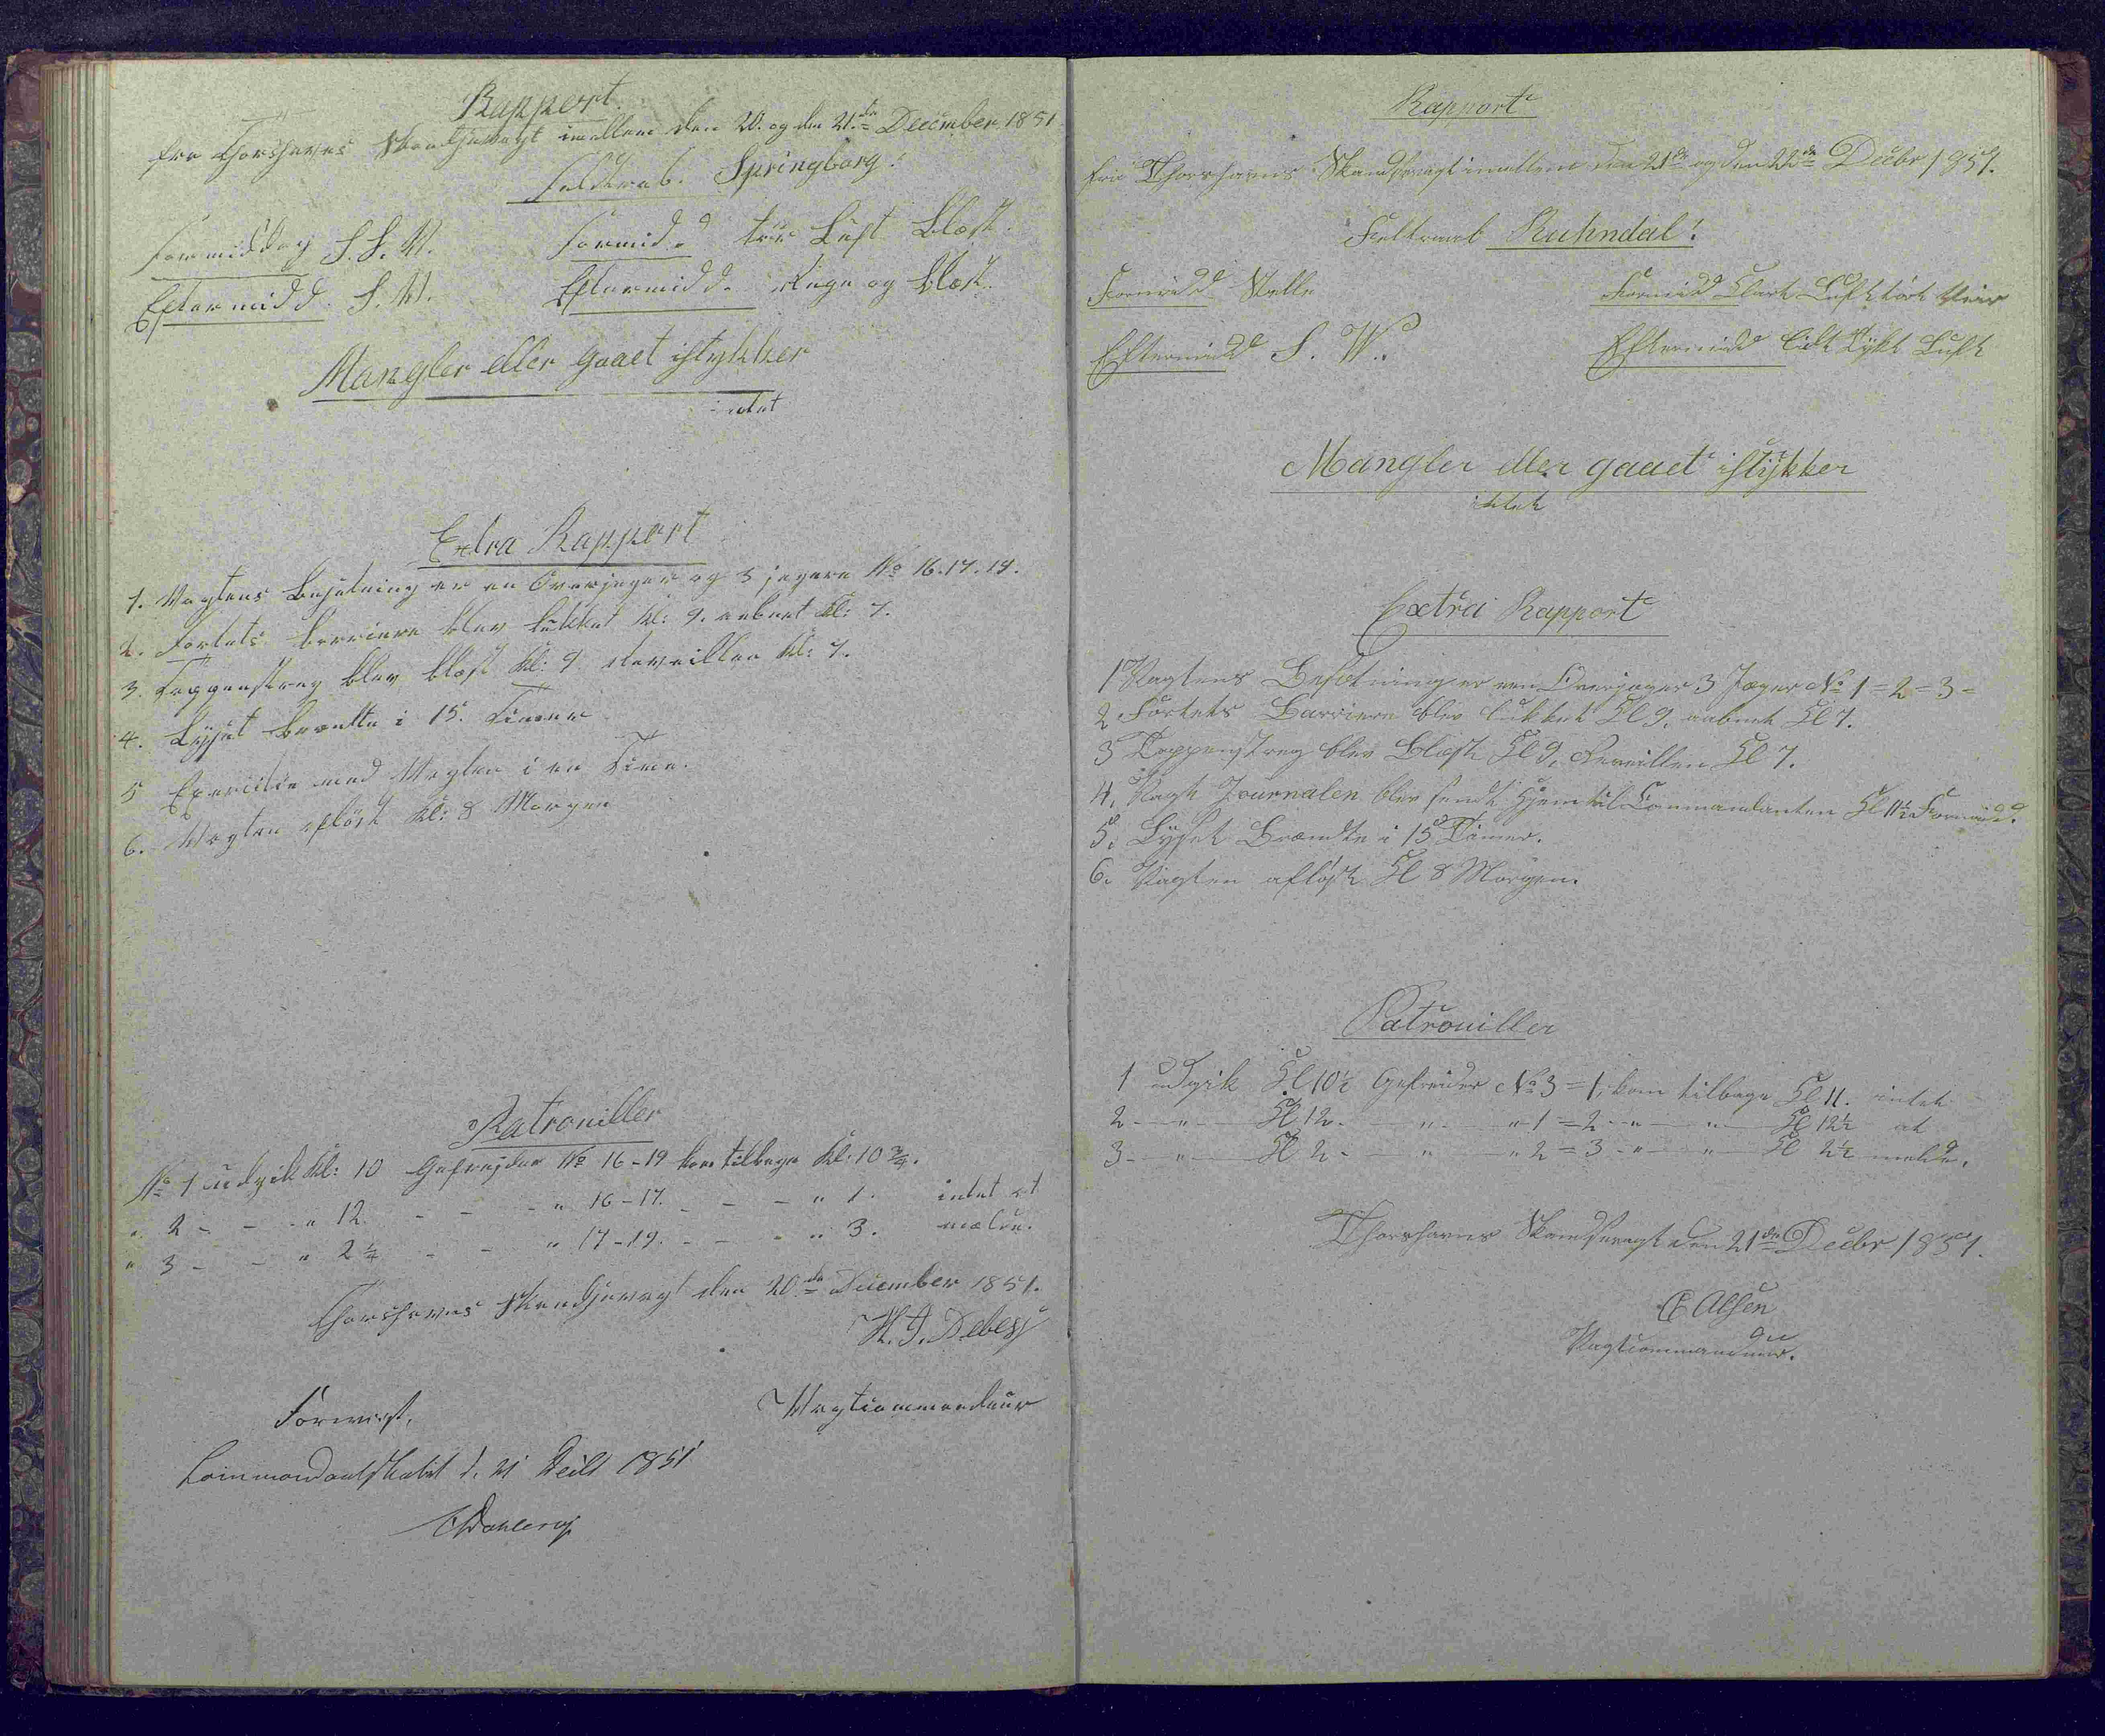 Rapport
fra Thorshavns Skandsevagt imellem den 20. og den 21de December 1851
Feldtraab. Springborg!
Formiddag S.S.V. Formidd. tyk Luft Blæst.
Eftermidd. S.V. Eftermidd. Regn og Blæst.
Mangler eller gaaet istykker
intet
Extra Rapport
1. Vagtens Besætning er en Overjæger og 3 jægere No 16.17.19.
2. Fortets Barriere blev lukket Kl: 9. aabnet Kl: 7.
3. Tappenstreg blev blæst Kl: 9 Reveillen Kl: 7.
4. Lyset brændte i 15. Timer
5 Exercitie med Vagten i en Time.
6. Vagten afløst Kl: 8 Morgen
Patrouiller
No 1 udgik Kl: 10 Gefrejder No 16-19 kom tilbage Kl: 10 3/4.
" 2 - - " 12. - - - " 16-17. - - - " 1. intet at
" 3 - - " 2 1/4 - - " 17-19. - - - " 3. melde.
Thorshavns Skandsevagt den 20de December 1851.
H. J. Debess
Vagtcommandeur
Forevist,
Commandantskabet d. 21 Decbr 1851
Dahlerup
Rapport
fra Thorshavns Skandsevagt imellem den 21de og den 22de Decbr 1851.
Feltraab Kuhndal!
Formidd Stille Formidd Klart Luft tørt Veir
Eftermidd S. W. Eftermidd lidt Tykt Luft
Mangler eller gaaet istykker
intet
Extra Rapport
1 Vagtens Besætning er een Overjæger 3 Jæger No 1=2=3=
2 Fortets Barriere blev lukket Kl 9, aabnet Kl 7.
3 Tappenstreg blev Blæst Kl 9, Reveillen Kl 7.
4. Vagt Journalen blev sendt Hjem til Commandanten Kl 11½ Formidd.
5. Lyset Brændte i 15 Timer.
6. Vagten afløst Kl 8 Morgen.
Patrouiller
1 udgik Kl 10½ Gefreider No 3=1, kom tilbage Kl 11. intet
2 - " - Kl 12 - " - " 1=2 - " - " - Kl 12½ at
3 - " - Kl 2 - " " 2=3 - " - " - Kl 2½ melde.
Thorshavns Skandsevagt den 21de Decbr 1851.
E Olsen
Vagtcommandeur.